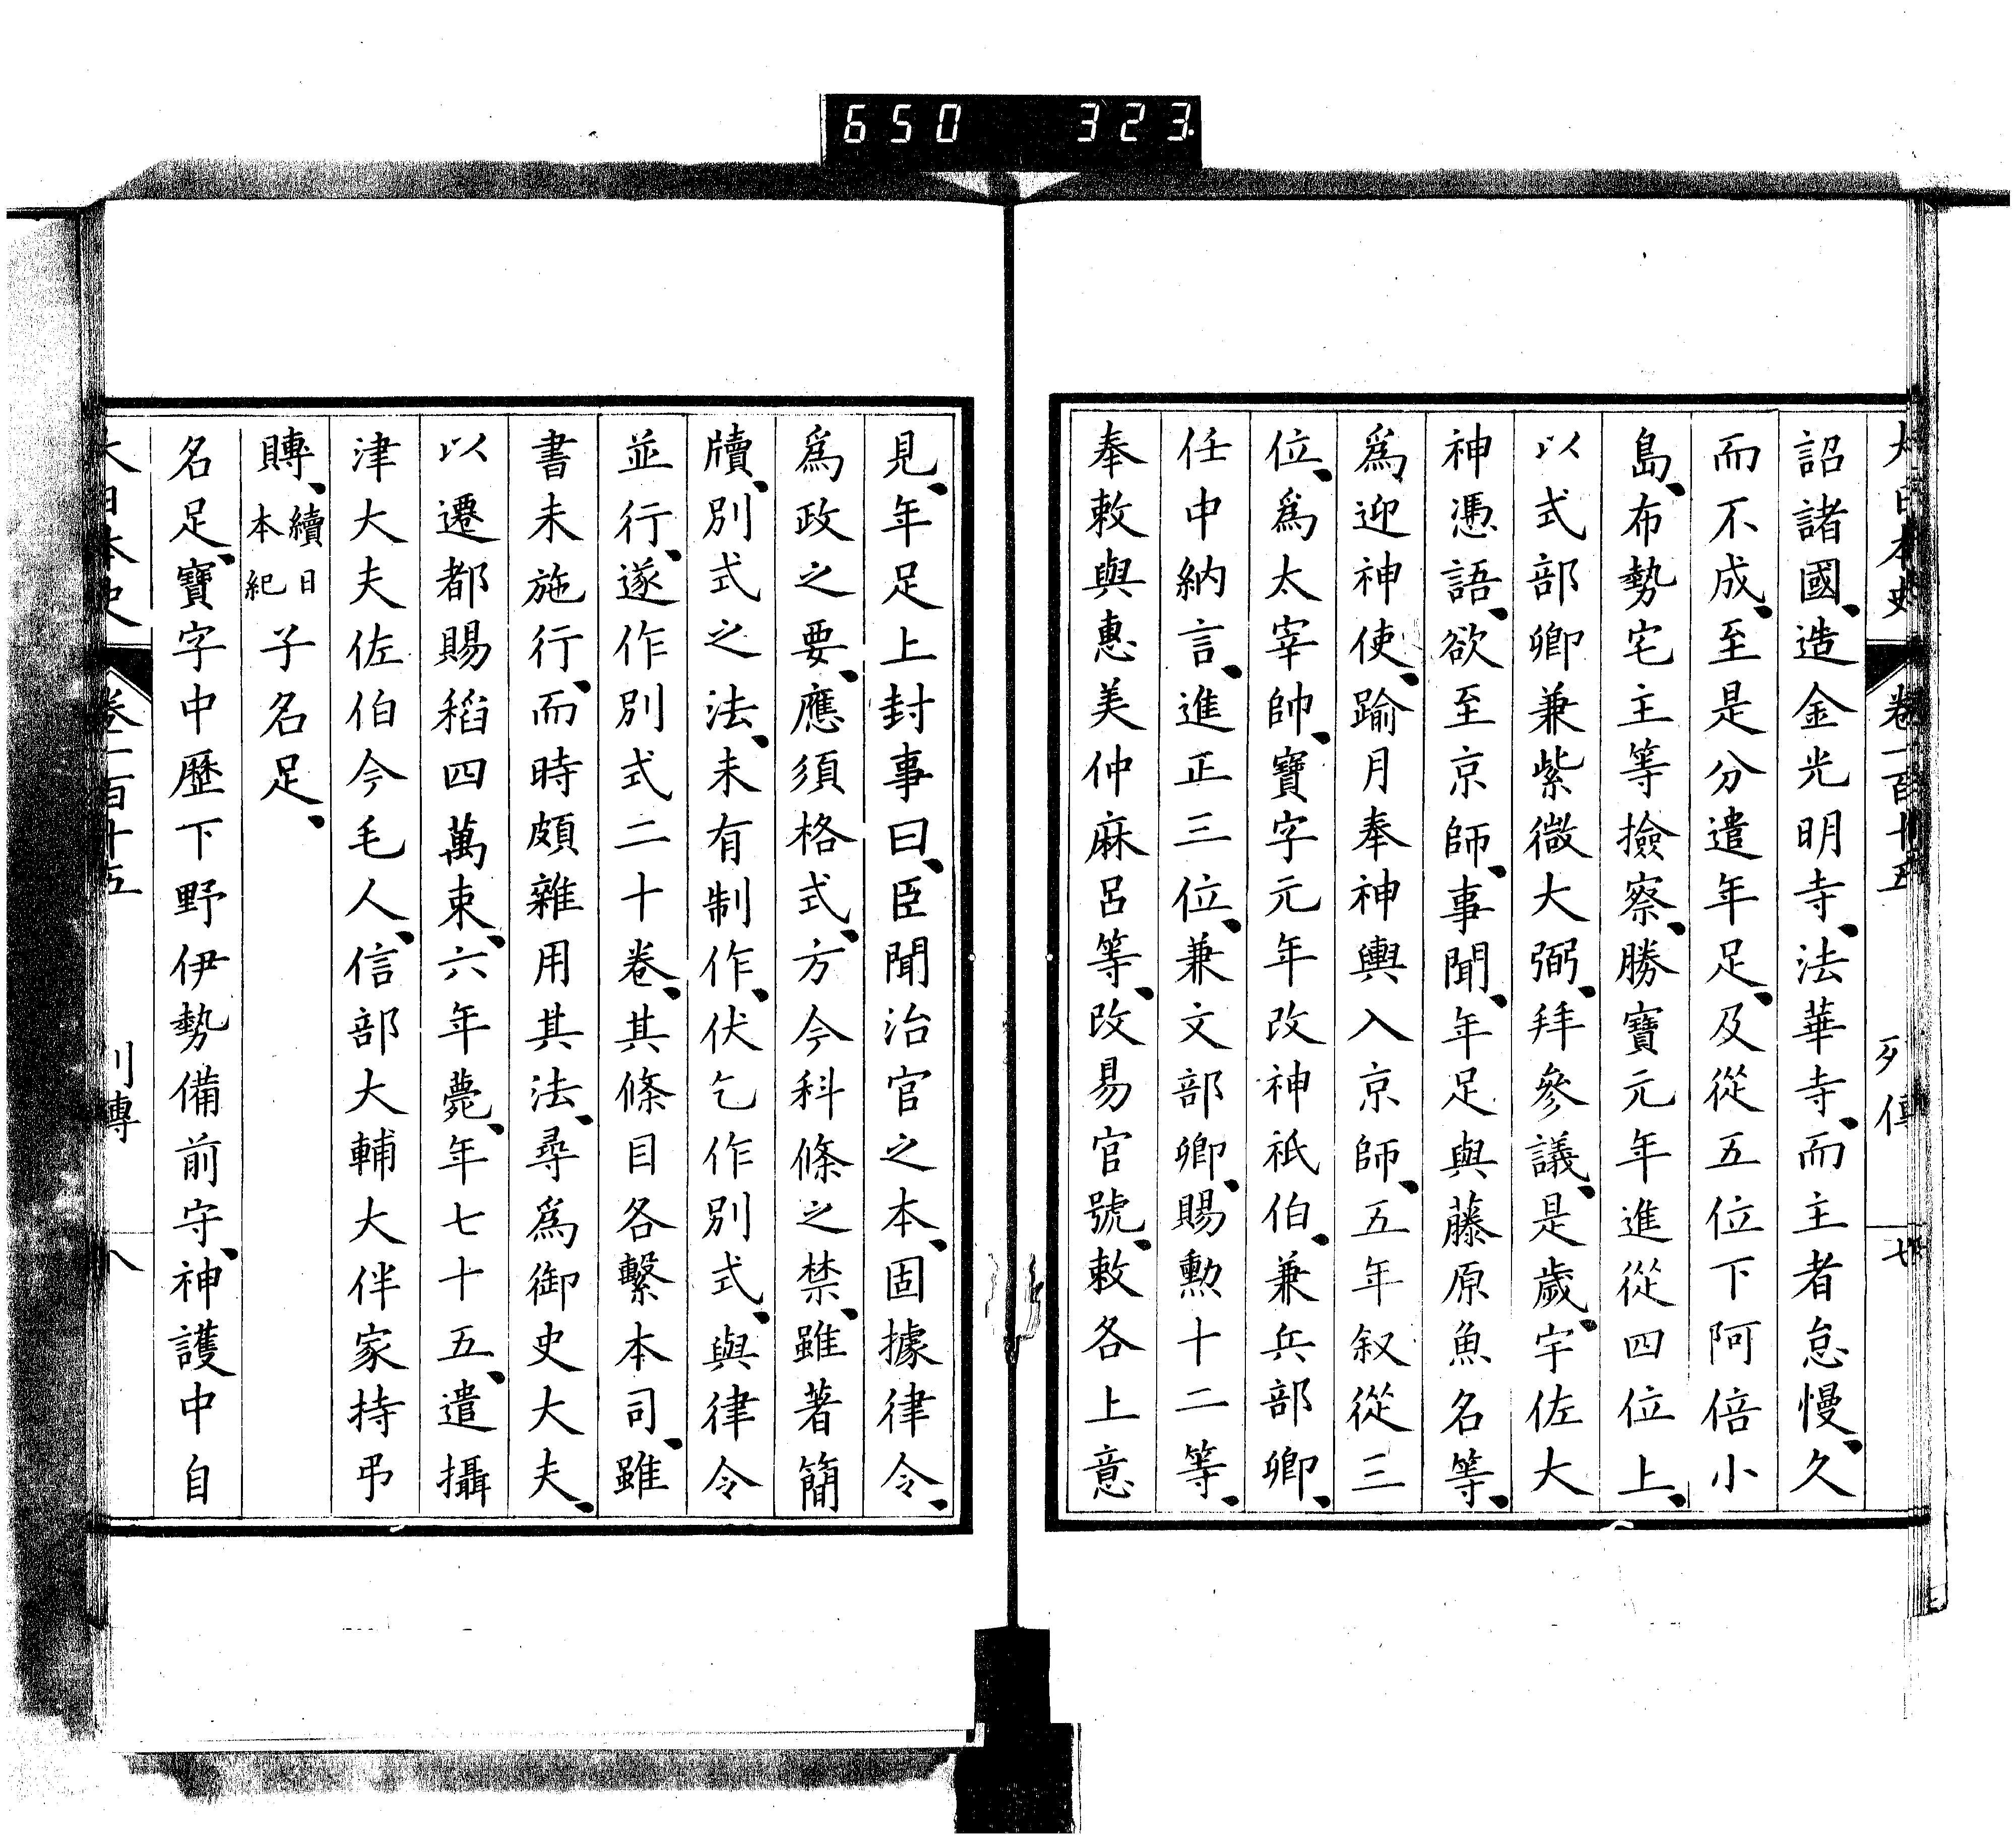 650 323
大日本史 卷一百十五 列傳 七
詔諸國、造金光明寺、法華寺、而主者怠慢、久
而不成、至是分遣年足、及從五位下阿倍小
島、布勢宅主等撿察、勝寶元年進從四位上、
以式部卿兼紫微大弼、拜參議、是歲、宇佐大
神憑語、欲至京師、事聞、年足與藤原魚名等、
爲迎神使、踰月奉神輿入京師、五年叙從三
位、爲太宰帥、寶字元年改神祇伯、兼兵部卿、
任中納言、進正三位、兼文部卿、賜勳十二等、
奉敕與惠美仲麻呂等、改易官號、敕各上意
見、年足上封事曰、臣聞治官之本、固據律令、
爲政之要、應須格式、方今科條之禁、雖著簡
牘、別式之法、未有制作、伏乞作別式、與律令
並行、遂作別式二十卷、其條目各繫本司、雖
書未施行、而時頗雜用其法、尋爲御史大夫、
以遷都賜稻四萬束、六年薨、年七十五、遣攝
津大夫佐伯今毛人、信部大輔大伴家持弔
賻、續日本紀子名足、
名足、寶字中歷下野伊勢備前守、神護中自
大日本史 卷一百十五 列傳 八